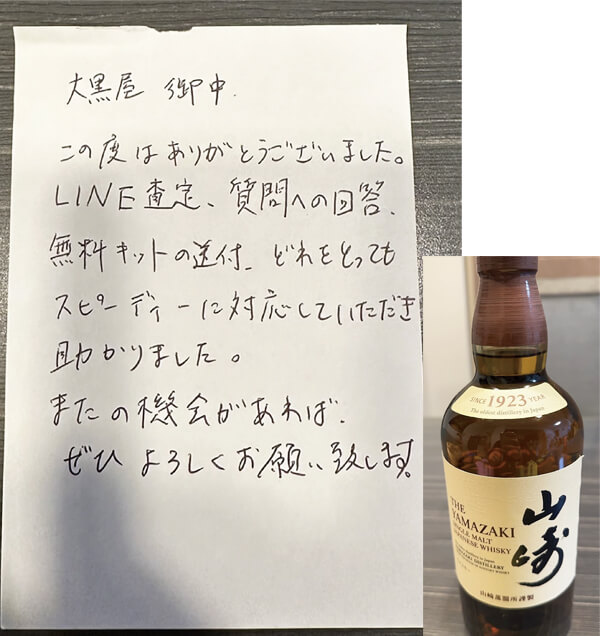 大黒屋 御中.
この度はありがとうございました。
LINE査定、質問への回答、
無料キットの送付、どれをとっても
スピーディーに対応していただき
助かりました。
またの機会があれば、
ぜひよろしくお願い致します。
SINCE 1923 YEAR
The oldest distillery in Japan
THE
YAMAZAKI
SINGLE MALT
JAPANESE WHISKY
山崎
YAMAZAKI DISTILLERY
山崎蒸溜所謹製